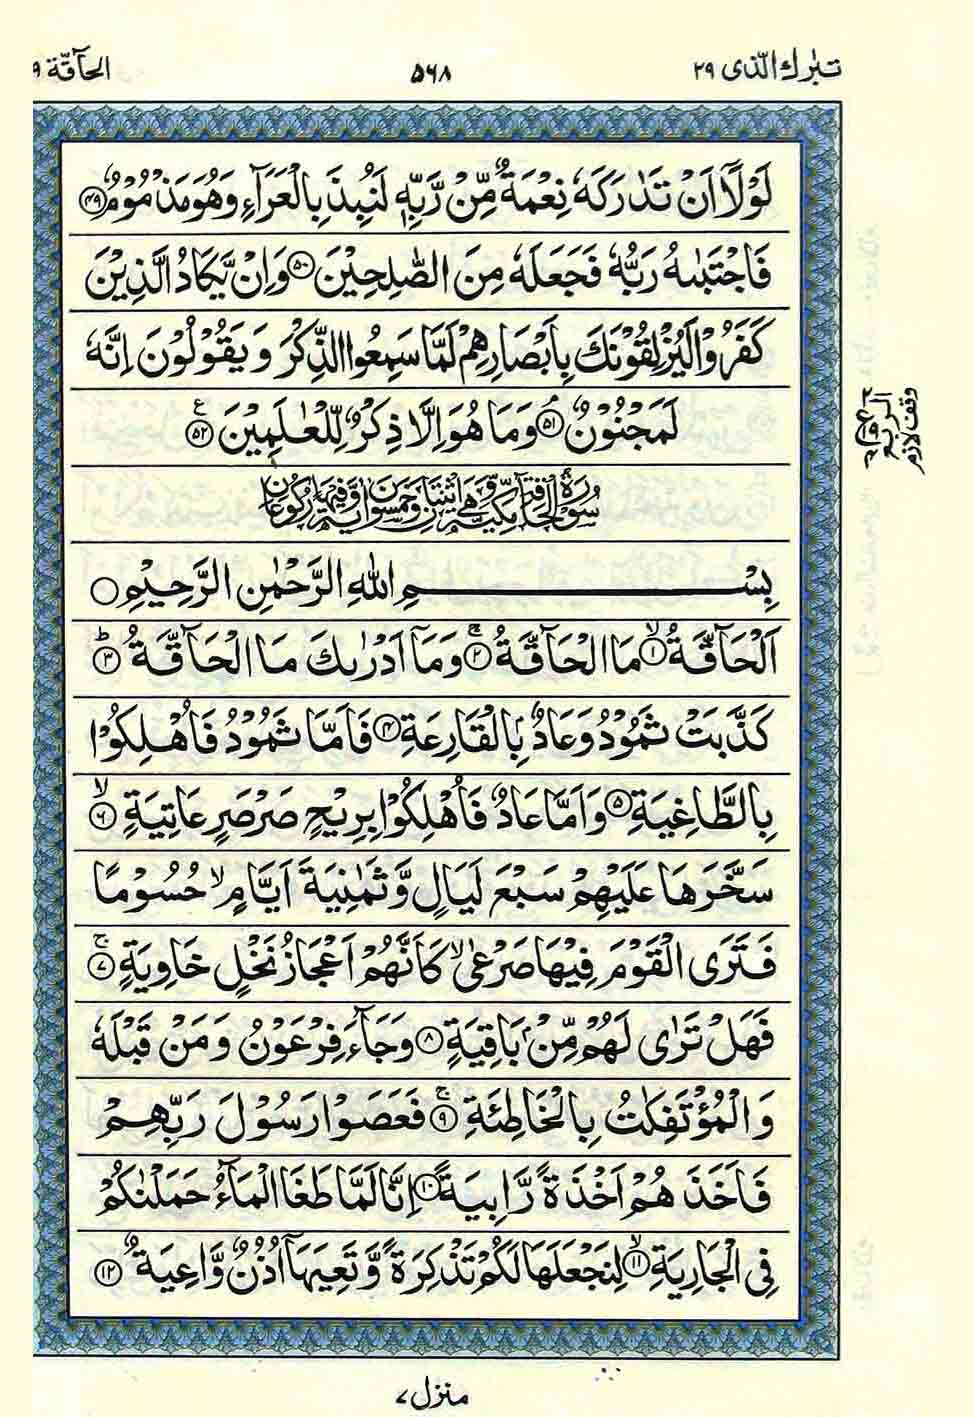 تبٰرك الّذى ٢٩ ٥٦٨ الحآقّة
لَوْلَاۤ اَنْ تَدٰرَكَهٗ نِعْمَةٌ مِّنْ رَّبِّهٖ لَنُبِذَ بِالْعَرَآءِ وَهُوَ مَذْمُوْمٌ ﴿٤٩﴾
فَاجْتَبٰىهُ رَبُّهٗ فَجَعَلَهٗ مِنَ الصّٰلِحِيْنَ ﴿٥٠﴾ وَاِنْ يَّكَادُ الَّذِيْنَ
كَفَرُوْا لَيُزْلِقُوْنَكَ بِاَبْصَارِهِمْ لَمَّا سَمِعُوا الذِّكْرَ وَيَقُوْلُوْنَ اِنَّهٗ
لَمَجْنُوْنٌ ﴿٥١﴾ وَمَا هُوَ اِلَّا ذِكْرٌ لِّلْعٰلَمِيْنَ ﴿٥٢﴾
سُوْرَةُ الْحَآقَّةِ مَكِّيَّةٌ وَّهِيَ اثْنَتَانِ وَخَمْسُوْنَ اٰيَةً وَّفِيْهَا رُكُوْعَانِ
بِسْمِ اللهِ الرَّحْمٰنِ الرَّحِيْمِ
اَلْحَآقَّةُ ﴿١﴾ مَا الْحَآقَّةُ ﴿٢﴾ وَمَاۤ اَدْرٰىكَ مَا الْحَآقَّةُ ﴿٣﴾
كَذَّبَتْ ثَمُوْدُ وَعَادٌۢ بِالْقَارِعَةِ ﴿٤﴾ فَاَمَّا ثَمُوْدُ فَاُهْلِكُوْا
بِالطَّاغِيَةِ ﴿٥﴾ وَاَمَّا عَادٌ فَاُهْلِكُوْا بِرِيْحٍ صَرْصَرٍ عَاتِيَةٍ ﴿٦﴾
سَخَّرَهَا عَلَيْهِمْ سَبْعَ لَيَالٍ وَّثَمٰنِيَةَ اَيَّامٍ ۙ حُسُوْمًا
فَتَرَى الْقَوْمَ فِيْهَا صَرْعٰى ۙ كَاَنَّهُمْ اَعْجَازُ نَخْلٍ خَاوِيَةٍ ﴿٧﴾
فَهَلْ تَرٰى لَهُمْ مِّنْۢ بَاقِيَةٍ ﴿٨﴾ وَجَآءَ فِرْعَوْنُ وَمَنْ قَبْلَهٗ
وَالْمُؤْتَفِكٰتُ بِالْخَاطِئَةِ ﴿٩﴾ فَعَصَوْا رَسُوْلَ رَبِّهِمْ
فَاَخَذَهُمْ اَخْذَةً رَّابِيَةً ﴿١٠﴾ اِنَّا لَمَّا طَغَا الْمَآءُ حَمَلْنٰكُمْ
فِى الْجَارِيَةِ ﴿١١﴾ لِنَجْعَلَهَا لَكُمْ تَذْكِرَةً وَّتَعِيَهَاۤ اُذُنٌ وَّاعِيَةٌ ﴿١٢﴾
الربع
وقف لازم
منزل ٧